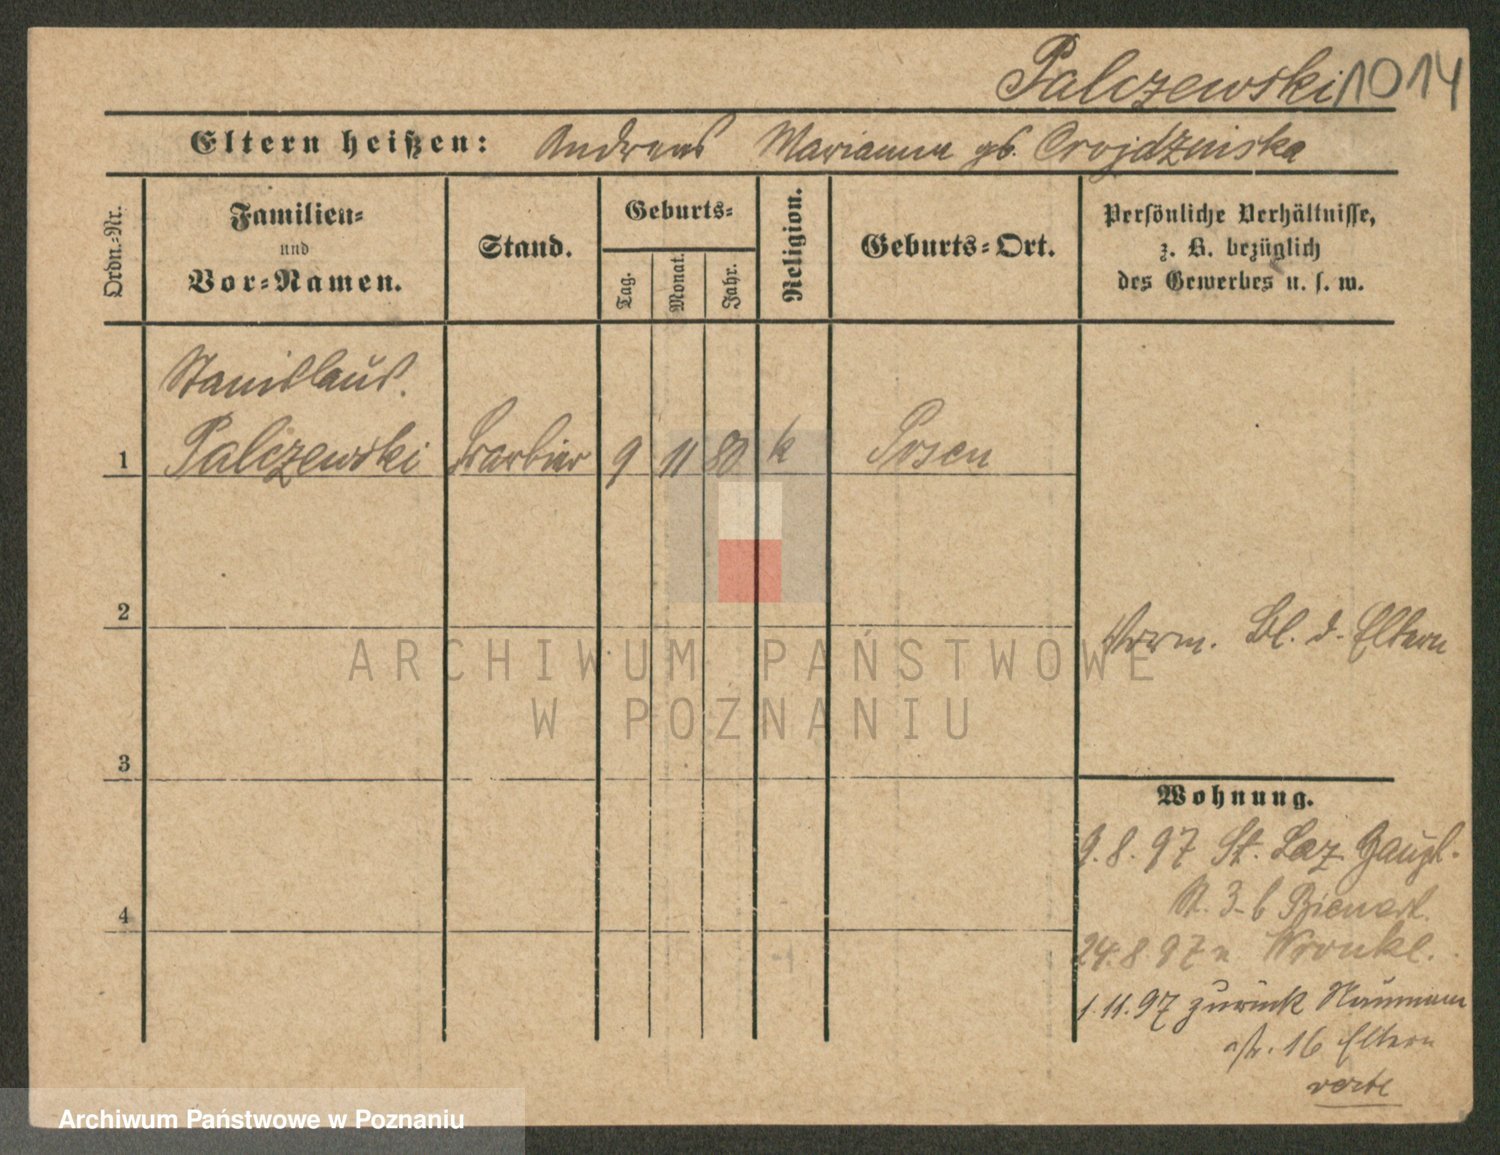 Palczewski 1014
Eltern heißen: Andreas Marianna gb. Crojdzniska
Ordn.-Nr.
Familien-
und
Vor-Namen.
Stand.
Geburts-
Tag.
Monat.
Jahr.
Religion.
Geburts-Ort.
Persönliche Verhältnisse,
z. B. bezüglich
des Gewerbes u. s. w.
Stanislaus.
1 Palczewski Barbier 9 11 80 k Posen
2
Vorm. Bl. d. Eltern
3
Wohnung.
9.8.97 St. Laz.
St. 3 b
4
24.8.97 n Wronke.
1.11.97 zurück Naumann
str. 16 Eltern
verte
ARCHIWUM PAŃSTWOWE
W POZNANIU
Archiwum Państwowe w Poznaniu